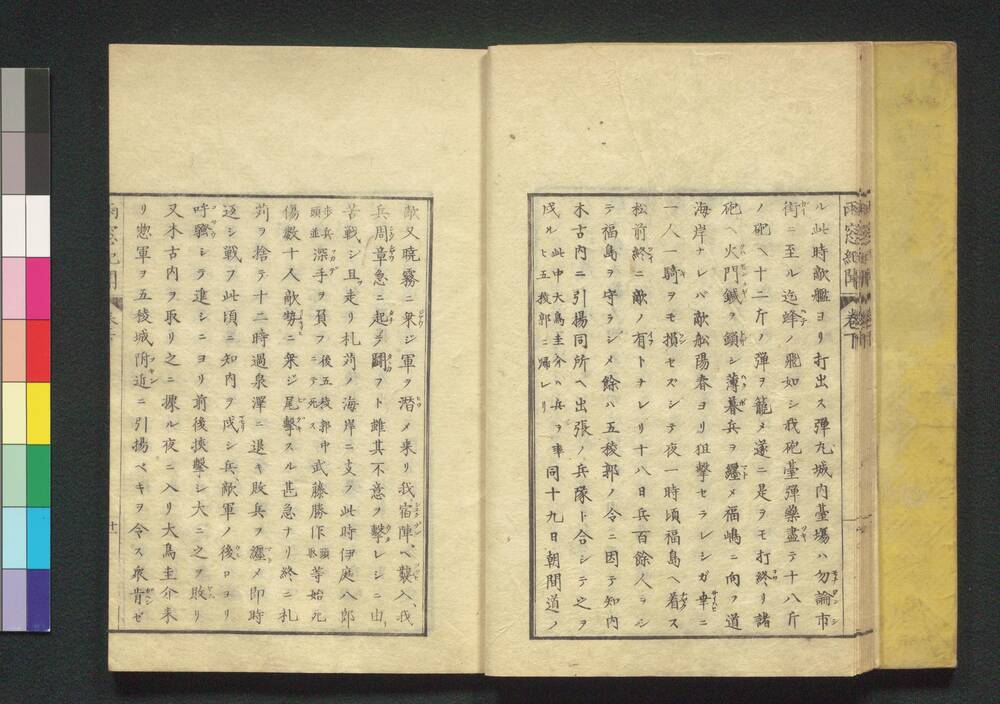 ル此時敵艦ヨリ打出ス彈丸城内臺場ハ勿論市
街ニ至ル迄蜂ノ飛如シ我砲臺彈藥盡テ十八斤
ノ砲ヘ十二斤ノ彈ヲ籠メ遂ニ是ヲモ打終リ諸
砲ヘ火門鍼ヲ鎖シ薄暮兵ヲ纒メ福嶋ニ向フ道
海岸ナレバ敵舩陽春ヨリ狙擊セラレシガ幸ニ
一人一騎ヲモ損セズシテ夜一時頃福島ヘ着ス
松前終ニ敵ノ有トナレリ十八日兵百餘人ヲシ
テ福島ヲ守ラシメ餘ハ五稜郭ノ令ニ因テ知内
木古内ニ引揚同所ヘ出張ノ兵隊ト合シテ之ヲ
戍ル此中大鳥圭介ハ兵ヲ率ヒ五稜郭ニ歸レリ同十九日朝間道ノ
雨窓紀聞 卷下
敵又曉霧ニ乘ジ軍ヲ潜メ来リ我宿陣ヘ襲入我
兵周章急ニ起テ鬪フト雖其不意ヲ擊レシニ由
苦戰シ且走リ札苅ノ海岸ニ支フ此時伊庭八郎
歩兵頭並深手ヲ負フ後五稜郭中ニテ死ス武藤勝作頭取等始死
傷數十人敵勢ニ乘ジ尾擊スル甚急ナリ終ニ札
苅ヲ捨テ十二時過泉澤ニ退キ敗兵ヲ纒メ即時
返シ戰フ此頃ニ知内ヲ戍シ兵敵軍ノ後ロヨリ
呼譟シテ進シニヨリ前後挾擊シ大ニ之ヲ敗リ
又木古内ヲ取リ之ニ據ル夜ニ入リ大鳥圭介来
リ惣軍ヲ五稜城附近ニ引揚ベキヲ令ス衆肯ゼ